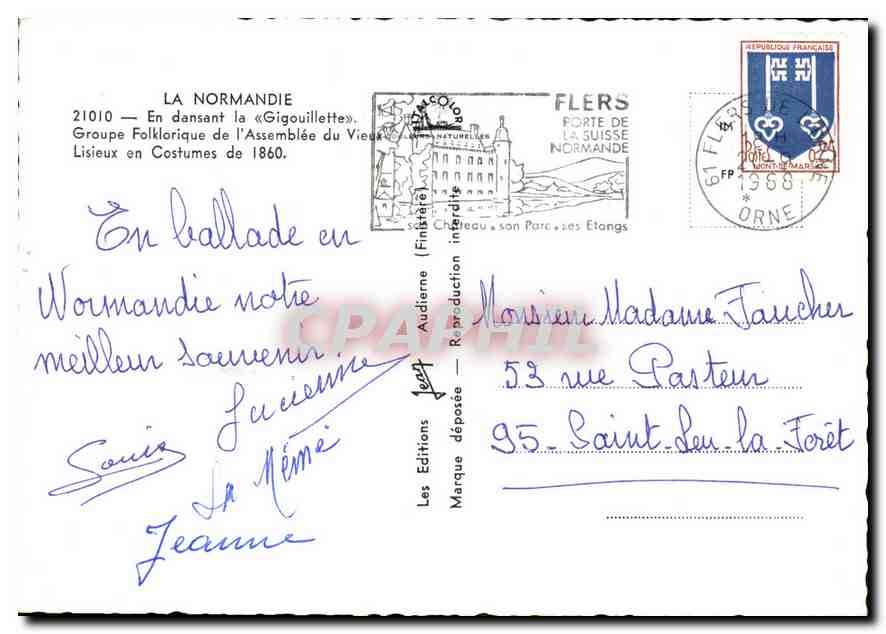 LA NORMANDIE
21010 — En dansant la «Gigouillette».
Groupe Folklorique de l'Assemblée du Vieux
Lisieux en Costumes de 1860.
ITALCOLOR
COULEURS NATURELLES
FLERS
PORTE DE
LA SUISSE
NORMANDE
son Château . son Parc . ses Etangs
REPUBLIQUE FRANÇAISE
MONT-DE-MARSAN
61 FLERS DE
1968
ORNE
FP
En ballade en
Normandie notre
meilleur souvenir.
Lucienne
Louis
La Mémé
Jeanne
Les Editions Jean Audierne (Finistère)
Marque déposée — Reproduction interdite
Monsieur Madame Faucher
53 rue Pasteur
95 - Saint-Leu-la-Forêt
CPAPHIL